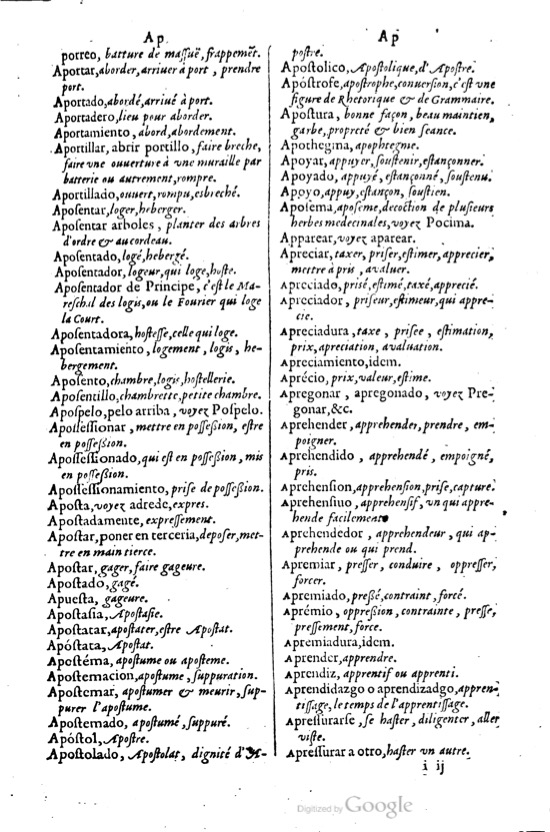 Ap
porreo, batture de maſſuë, frappemēt.
Aportar, aborder, arriuer à port, prendre
port.
Aportado, abordé, arriué à port.
Aportadero, lieu pour aborder.
Aportamiento, abord, abordement.
Aportillar, abrir portillo, faire breche,
faire vne ouuerture à vne muraille par
batterie ou autrement, rompre.
Aportillado, ouuert, rompu, esbreché.
Apoſentar, loger, heberger.
Apoſentar arboles, planter des arbres
d'ordre & au cordeau.
Apoſentado, logé, hebergé.
Apoſentador, logeur, qui loge, hoſte.
Apoſentador de Principe, c'eſt le Ma-
reſchal des logis, ou le Fourier qui loge
la Court.
Apoſentadora, hoſteſſe, celle qui loge.
Apoſentamiento, logement, logis, he-
bergement.
Apoſento, chambre, logis, hoſtellerie.
Apoſentillo, chambrette, petite chambre.
Apoſpelo, pelo arriba, voyez Poſpelo.
Apoſſeſſionar, mettre en poſſeßion, eſtre
en poſſeßion.
Apoſſeſſionado, qui eſt en poſſeßion, mis
en poſſeßion.
Apoſſeſſionamiento, priſe de poſſeßion.
Apoſta, voyez adrede, expres.
Apoſtadamente, expreſſement.
Apoſtar, poner en terceria, depoſer, met-
tre en main tierce.
Apoſtar, gager, faire gageure.
Apoſtado, gagé.
Apueſta, gageure.
Apoſtaſia, Apoſtaſie.
Apoſtatar, apoſtater, eſtre Apoſtat.
Apóſtara, Apoſtat.
Apoſtéma, apoſtume ou apoſteme.
Apoſtemacion, apoſtume, ſuppuration.
Apoſtemar, apoſtumer & meurir, ſup-
purer l'apoſtume.
Apoſtemado, apoſtumé, ſuppuré.
Apóſtol, Apoſtre.
Apoſtolado, Apoſtolat, dignité d'A-
Ap
poſtre.
Apoſtolico, Apoſtolique, d'Apoſtre.
Apóſtrofe, apoſtrophe, conuerſion, c'eſt vne
figure de Rhetorique & de Grammaire.
Apoſtura, bonne façon, beau maintien,
garbe, propreté & bien ſeance.
Apothegina, apophtegme.
Apoyar, appuyer, ſouſtenir, eſtançonner.
Apoyado, appuyé, eſtançonné, ſouſtenu.
Apoyo, appuy, eſtançon, ſouſtien.
Apoſema, apoſeme, decoction de pluſieurs
herbes medecinales, voyez Pocima.
Apparear, voyez aparear.
Apreciar, taxer, priſer, eſtimer, apprecier,
mettre à pris, aualuer.
Apreciado, priſé, eſtimé, taxé, apprecié.
Apreciador, priſeur, eſtimeur, qui appre-
cie.
Apreciadura, taxe, priſee, eſtimation,
prix, apreciation, aualuation.
Apreciamiento, idem.
Aprécio, prix, valeur, eſtime.
Apregonar, apregonado, voyez Pre-
gonar, &c.
Aprehender, apprehender, prendre, em-
poigner.
Aprehendido, apprehendé, empoigné,
pris.
Aprehenſion, apprehenſion, priſe, capture.
Aprehenſiuo, apprehenſif, vn qui appre-
hende facilement
Aprehendedor, apprehendeur, qui ap-
prehende ou qui prend.
Apremiar, preſſer, conduire, oppreſſer,
forcer.
Apremiado, preßé, contraint, forcé.
Aprémio, oppreßion, contrainte, preſſe,
preſſement, force.
Apremiadura, idem.
Aprender, apprendre.
Aprendiz, apprentif ou apprenti.
Aprendidazgo o aprendizadgo, appren-
tiſſage, le temps de l'apprentiſſage.
Apreſſurarſe, ſe haſter, diligenter, aller
viſte.
Apreſſurar a otro, haſter vn autre.
i ij
Digitized by Google